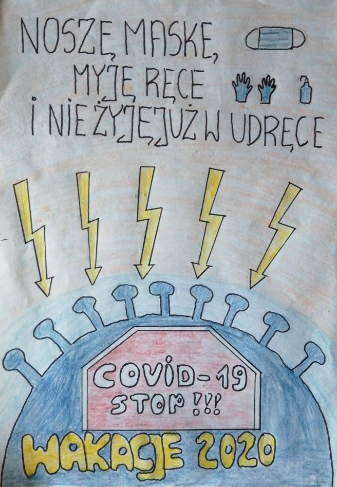 NOSZĘ MASKĘ,
MYJĘ RĘCE
I NIE ŻYJĘ JUŻ W UDRĘCE
COVID-19
STOP!!!
WAKACJE 2020